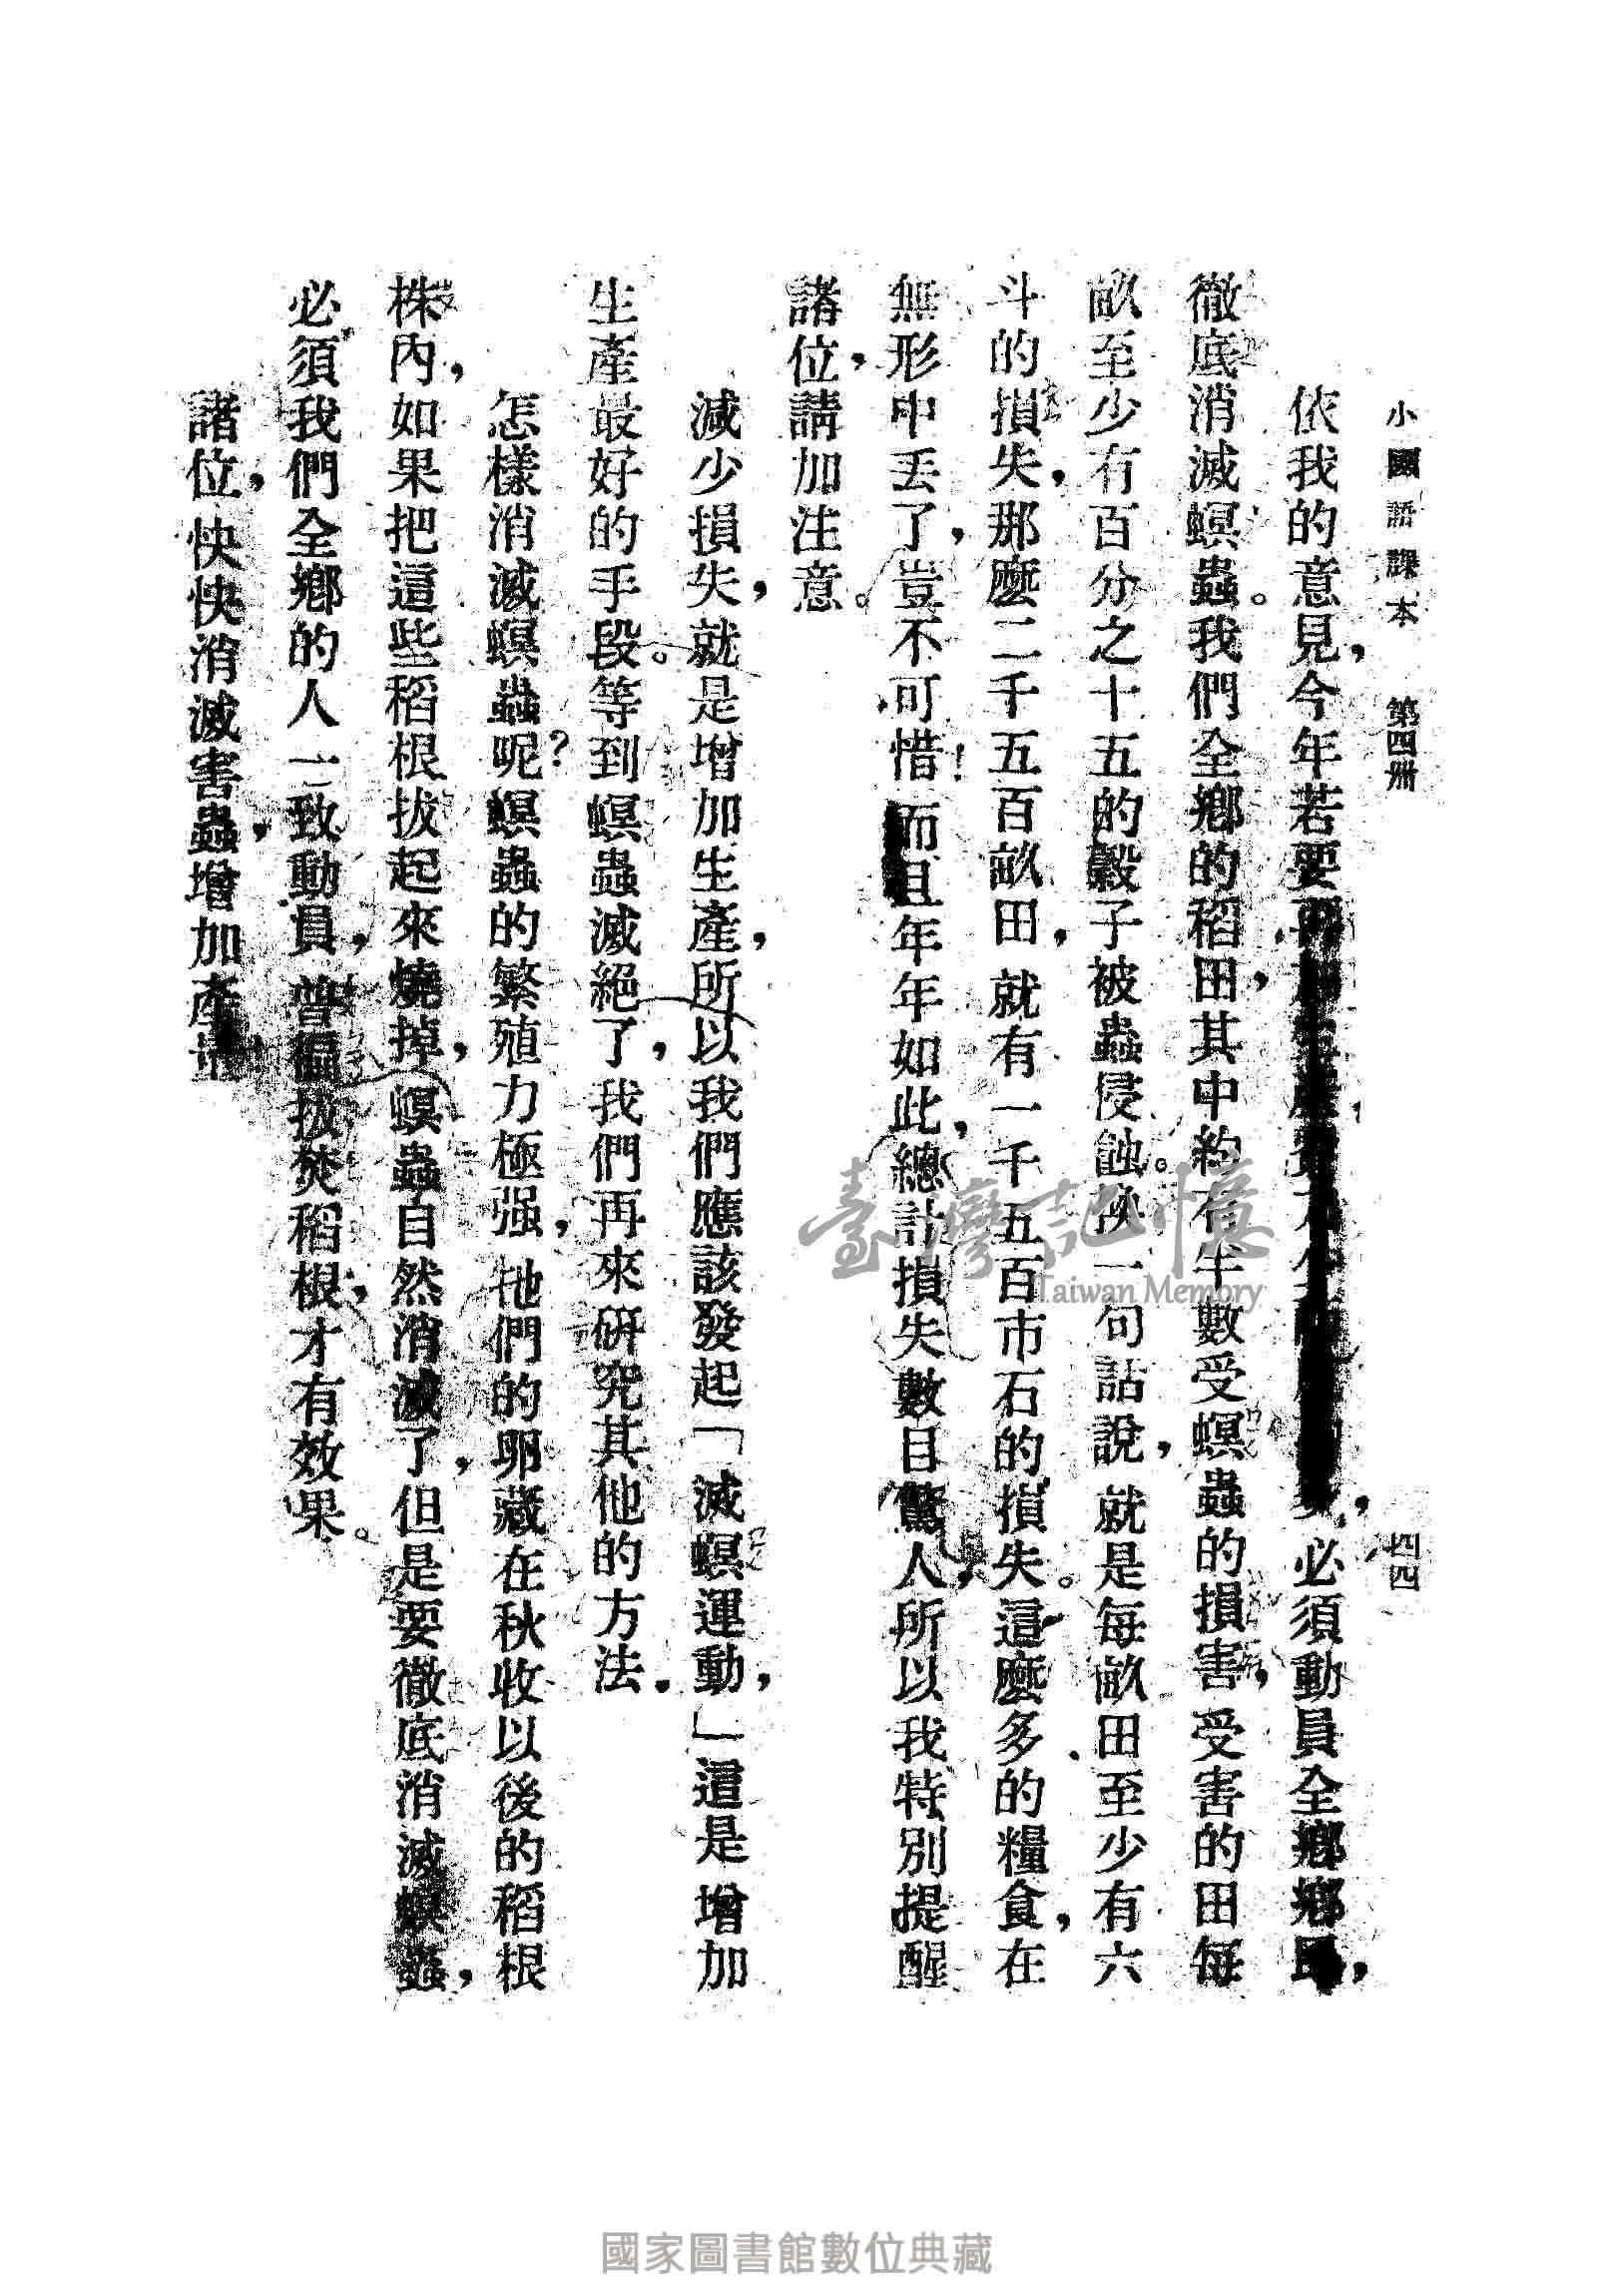 小國語課本 第四冊 四四
依我的意見，今年若要 必須動員全鄉鄉民，
徹底消滅螟蟲。我們全鄉的稻田，其中約有半數受螟蟲的損害，受害的田每
畝至少有百分之十五的穀子被蟲侵蝕。換一句話說，就是每畝田至少有六
斗的損失，那麼二千五百畝田，就有一千五百市石的損失。這麼多的糧食，在
無形中丟了，豈不可惜！而且年年如此，總計損失數目驚人，所以我特別提醒
諸位，請加注意。
減少損失，就是增加生產，所以我們應該發起「滅螟運動，」這是增加
生產最好的手段。等到螟蟲滅絕了，我們再來研究其他的方法。
怎樣消滅螟蟲呢？螟蟲的繁殖力極强，牠們的卵藏在秋收以後的稻根
株內，如果把這些稻根拔起來燒掉，螟蟲自然消滅了，但是要徹底消滅螟蟲，
必須我們全鄉的人一致動員，普徧拔焚稻根，才有效果。
諸位，快快消滅害蟲，增加產量
臺灣記憶
Taiwan Memory
國家圖書館數位典藏